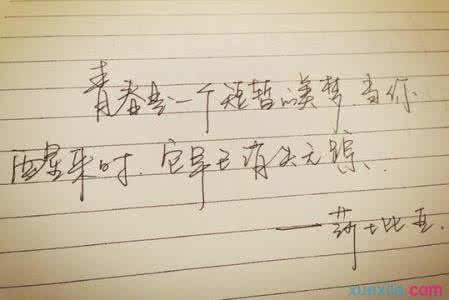 青春是一个短暂的美梦,当你
醒来时,它早已消失无踪.
——莎士比亚.
xuexila.com